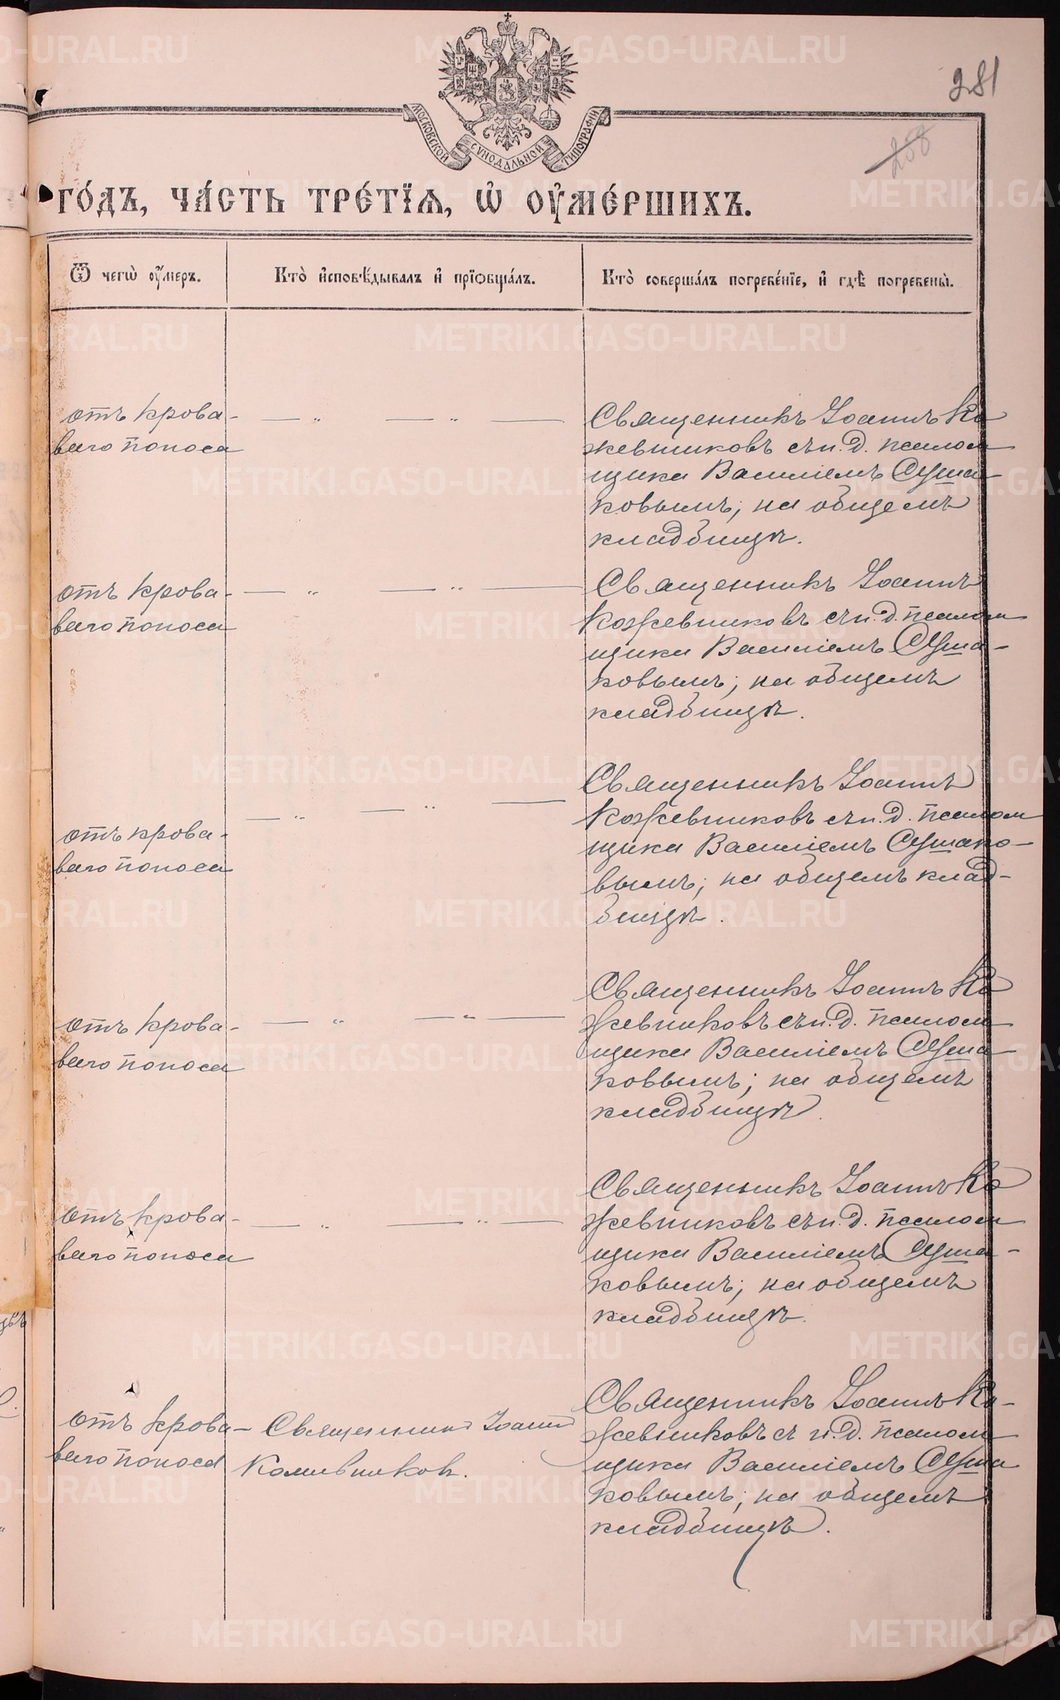 281
258
МОСКОВСКОЙ СѴНОДАЛЬНОЙ ТИПОГРАФІИ
го́дъ, ча́сть тре́тїѧ, ѡ҆ оу҆ме́ршихъ.
Ѿ чегѡ̀ оу҆́меръ.
Кто̀ и҆сповѣ́дывалъ и҆ прїѡбща́лъ.
Кто̀ соверша́лъ погребе́нїе, и҆ гдѣ̀ погребены̀.
отъ крова-
ваго поноса
— „ — „ —
Священникъ Іоаннъ Ко
жевниковъ съ и. д. псалом
щика Василіемъ Суша-
ковымъ, на общемъ
кладбищѣ.
отъ крова-
ваго поноса
— „ — „ —
Священникъ Іоаннъ
Кожевниковъ съ и. д. псалом
щика Василіемъ Суша-
ковымъ, на общемъ
кладбищѣ.
отъ крова-
ваго поноса
— „ — „ —
Священникъ Іоаннъ
Кожевниковъ съ и. д. псалом
щика Василіемъ Сушако-
вымъ, на общемъ клад-
бищѣ.
отъ крова-
ваго поноса
— „ — „ —
Священникъ Іоаннъ Ко
жевниковъ съ и. д. псалом
щика Василіемъ Суша-
ковымъ, на общемъ
кладбищѣ.
отъ крова-
ваго поноса
— „ — „ —
Священникъ Іоаннъ Ко
жевниковъ съ и. д. псалом
щика Василіемъ Суша-
ковымъ, на общемъ
кладбищѣ.
отъ крова-
ваго поноса
Священникъ Іоаннъ
Кожевниковъ.
Священникъ Іоаннъ Ко-
жевниковъ съ и. д. псалом
щика Василіемъ Суша
ковымъ, на общемъ
кладбищѣ.
METRIKI.GASO-URAL.RU